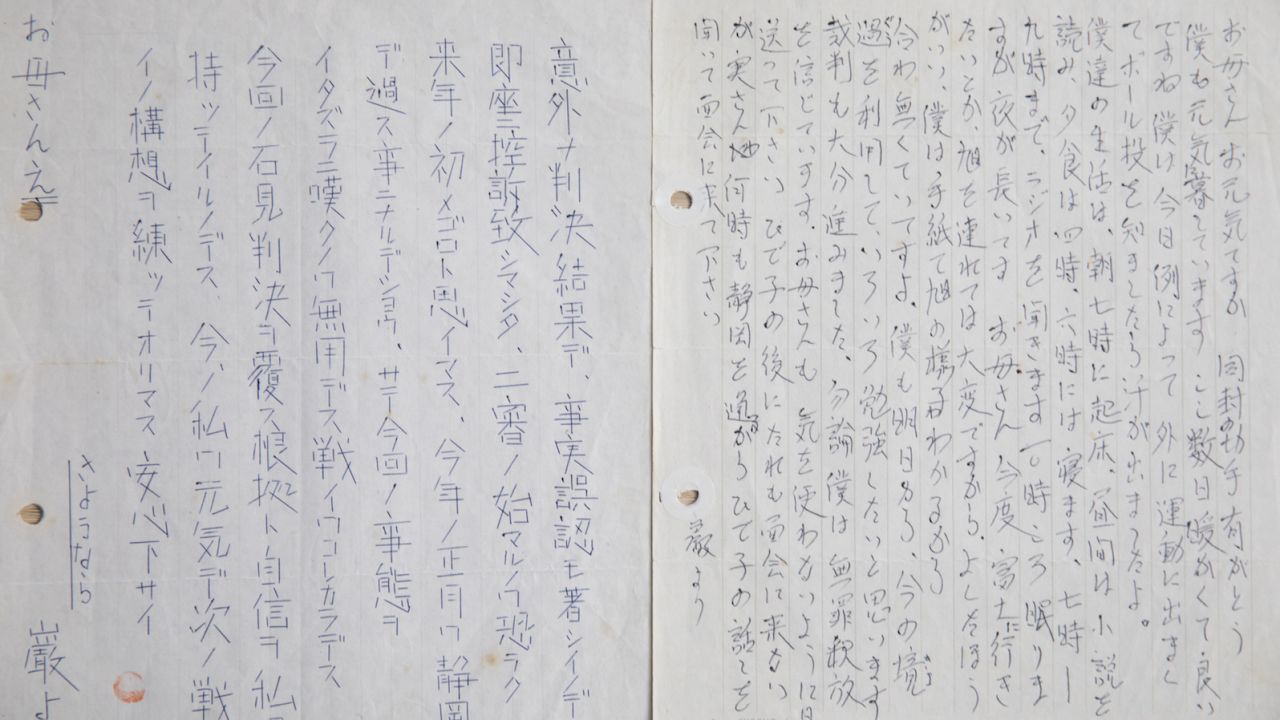 お母さんお元気ですか　同封の切手有がとう
僕も元気暮しています　ここ数日暖かくて良い
ですね　僕は今日例によって外に運動に出まし
てボール投を知ましたら汗が出ましたよ。
僕達の生活は、朝七時に起床、昼間は小説を
読み、夕食は四時、六時には寝ます、七時ー
九時まで、ラジオを聞きます一〇時ころ眠りま
すが夜が長いです　お母さん今度富士に行き
たいとか、旭を連れては大変ですから、よしたほう
がいい、僕は手紙で旭の様子わわかるから
会わ無くていですよ、僕も明日から、今の境
過を利用して、いろいろ勉強したいと思います
裁判も大分進みました、勿論僕は無罪釈放
を信じています、お母さんも　気を使わないように
送って下さい　ひで子の後にだれも面会に来ない
が実さん他何時も静岡を通るがらひで子の話しを
聞いて面会に来て下さい
巌より
意外ナ判決結果デ、事実誤認モ著シイノデ
即座ニ控訴致シマシタ、二審ノ始マルノワ恐ラク
来年ノ初メゴロト思イマス、今年ノ正月ワ静岡
デ過ス事ニナルデショウ、サテ今回ノ事態ヲ
イタズラニ嘆クノワ無用デス戦イワコレカラデス
今回ノ石見判決ヲ覆ス根拠ト自信ヲ私
持ッテイルノデス、今、私ワ元気デ次ノ戦
イノ構想ヲ練ッテオリマス安心下サイ
さようなら
巌よ
お母さんえ